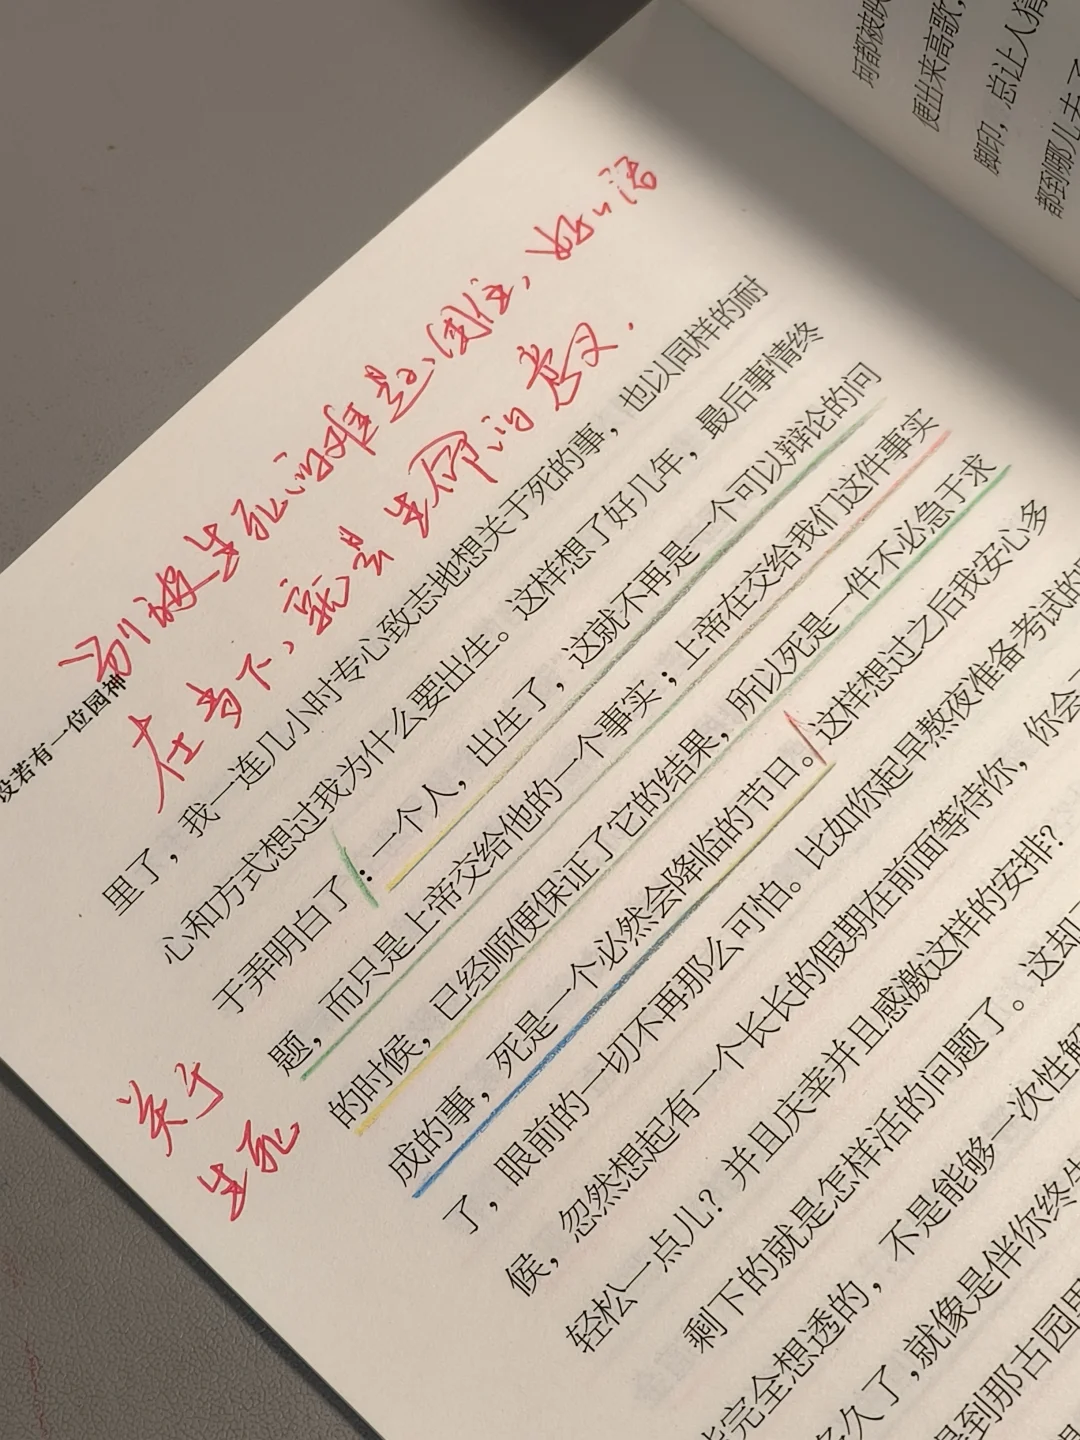 别被生死的难题困住，好好活
在当下，就是生命的意义.
设若有一位园神
里了，我一连几小时专心致志地想关于死的事，也以同样的耐
心和方式想过我为什么要出生。这样想了好几年，最后事情终
于弄明白了：一个人，出生了，这就不再是一个可以辩论的问
题，而只是上帝交给他的一个事实；上帝在交给我们这件事实
的时候，已经顺便保证了它的结果，所以死是一件不必急于求
成的事，死是一个必然会降临的节日。这样想过之后我安心多
了，眼前的一切不再那么可怕。比如你起早熬夜准备考试的
候，忽然想起有一个长长的假期在前面等待你，你会
轻松一点儿？并且庆幸并且感激这样的安排？
剩下的就是怎样活的问题了。这却
完全想透的，不是能够一次性解
多久了，就像是伴你终
是到那古园里
关于
生死
坷都被映
便出来高歌，
脚印，总让人猜
都到哪儿去了